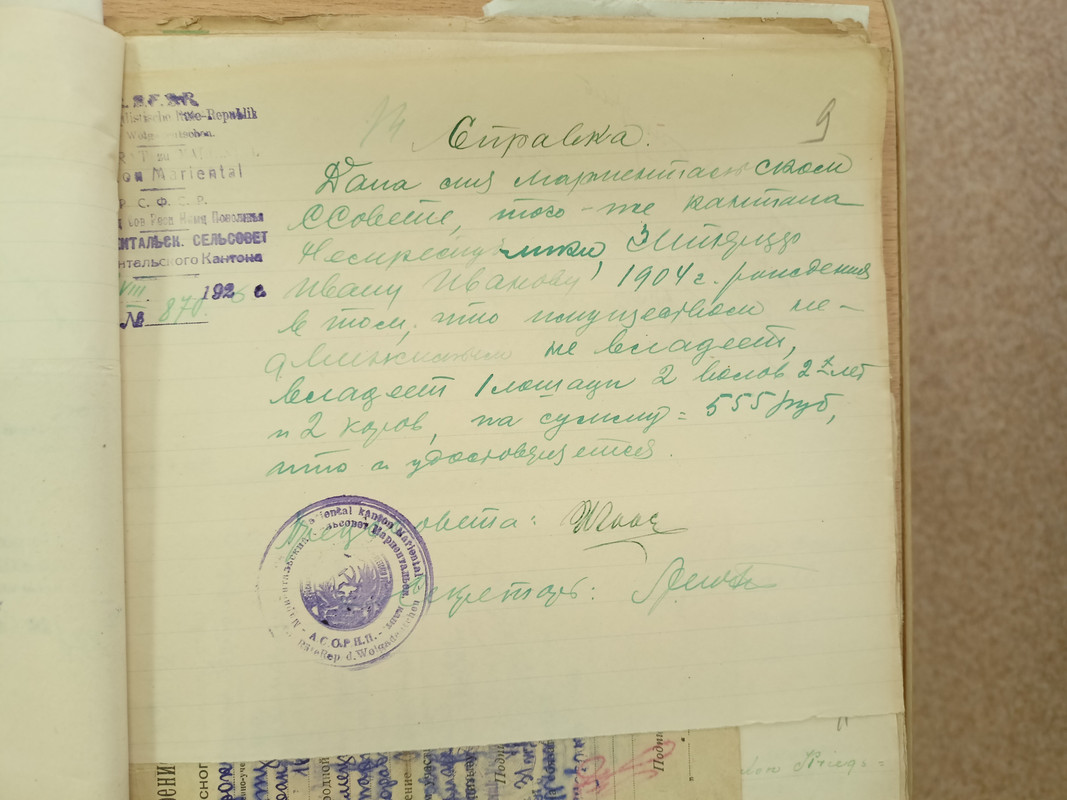 S.F.S.R
Räte-Republik
Wolgadeutschen.
on Mariental
Р. С. Ф. С. Р.
ков Респ Немц Поволжья
ИТАЛЬСК. СЕЛЬСОВЕТ
нтальского Кантона
VIII 192 г.
№ 870.
9
Справка.
Дана сия Мариентальском
ССовете, того-же кантона
Немреспублики,
Ивану Иванову, 1904 г. рождения
в том, что имуществом не-
движимым не владеет,
владеет 1 лошади 2 волов 2х лет
и 2 коров, на сумму = 555 руб,
что и удостоверяется.
Пред. совета:
Секретарь:
Mariental kanton Mariental
А.С.С.Р.Н.П.
Rep d. Wolgadeutschen